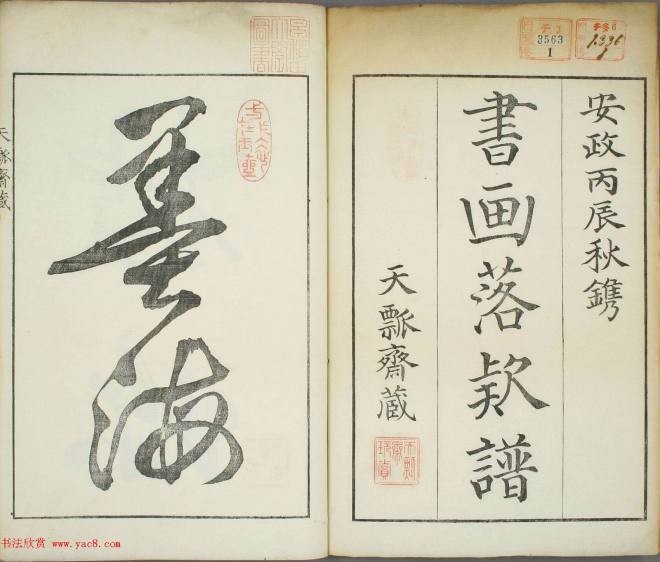 安政丙辰秋鐫
書画落款譜
天瓢齋蔵
チ3
3563
1
墨海
天瓢齋蔵
书法欣赏 www.yac8.com